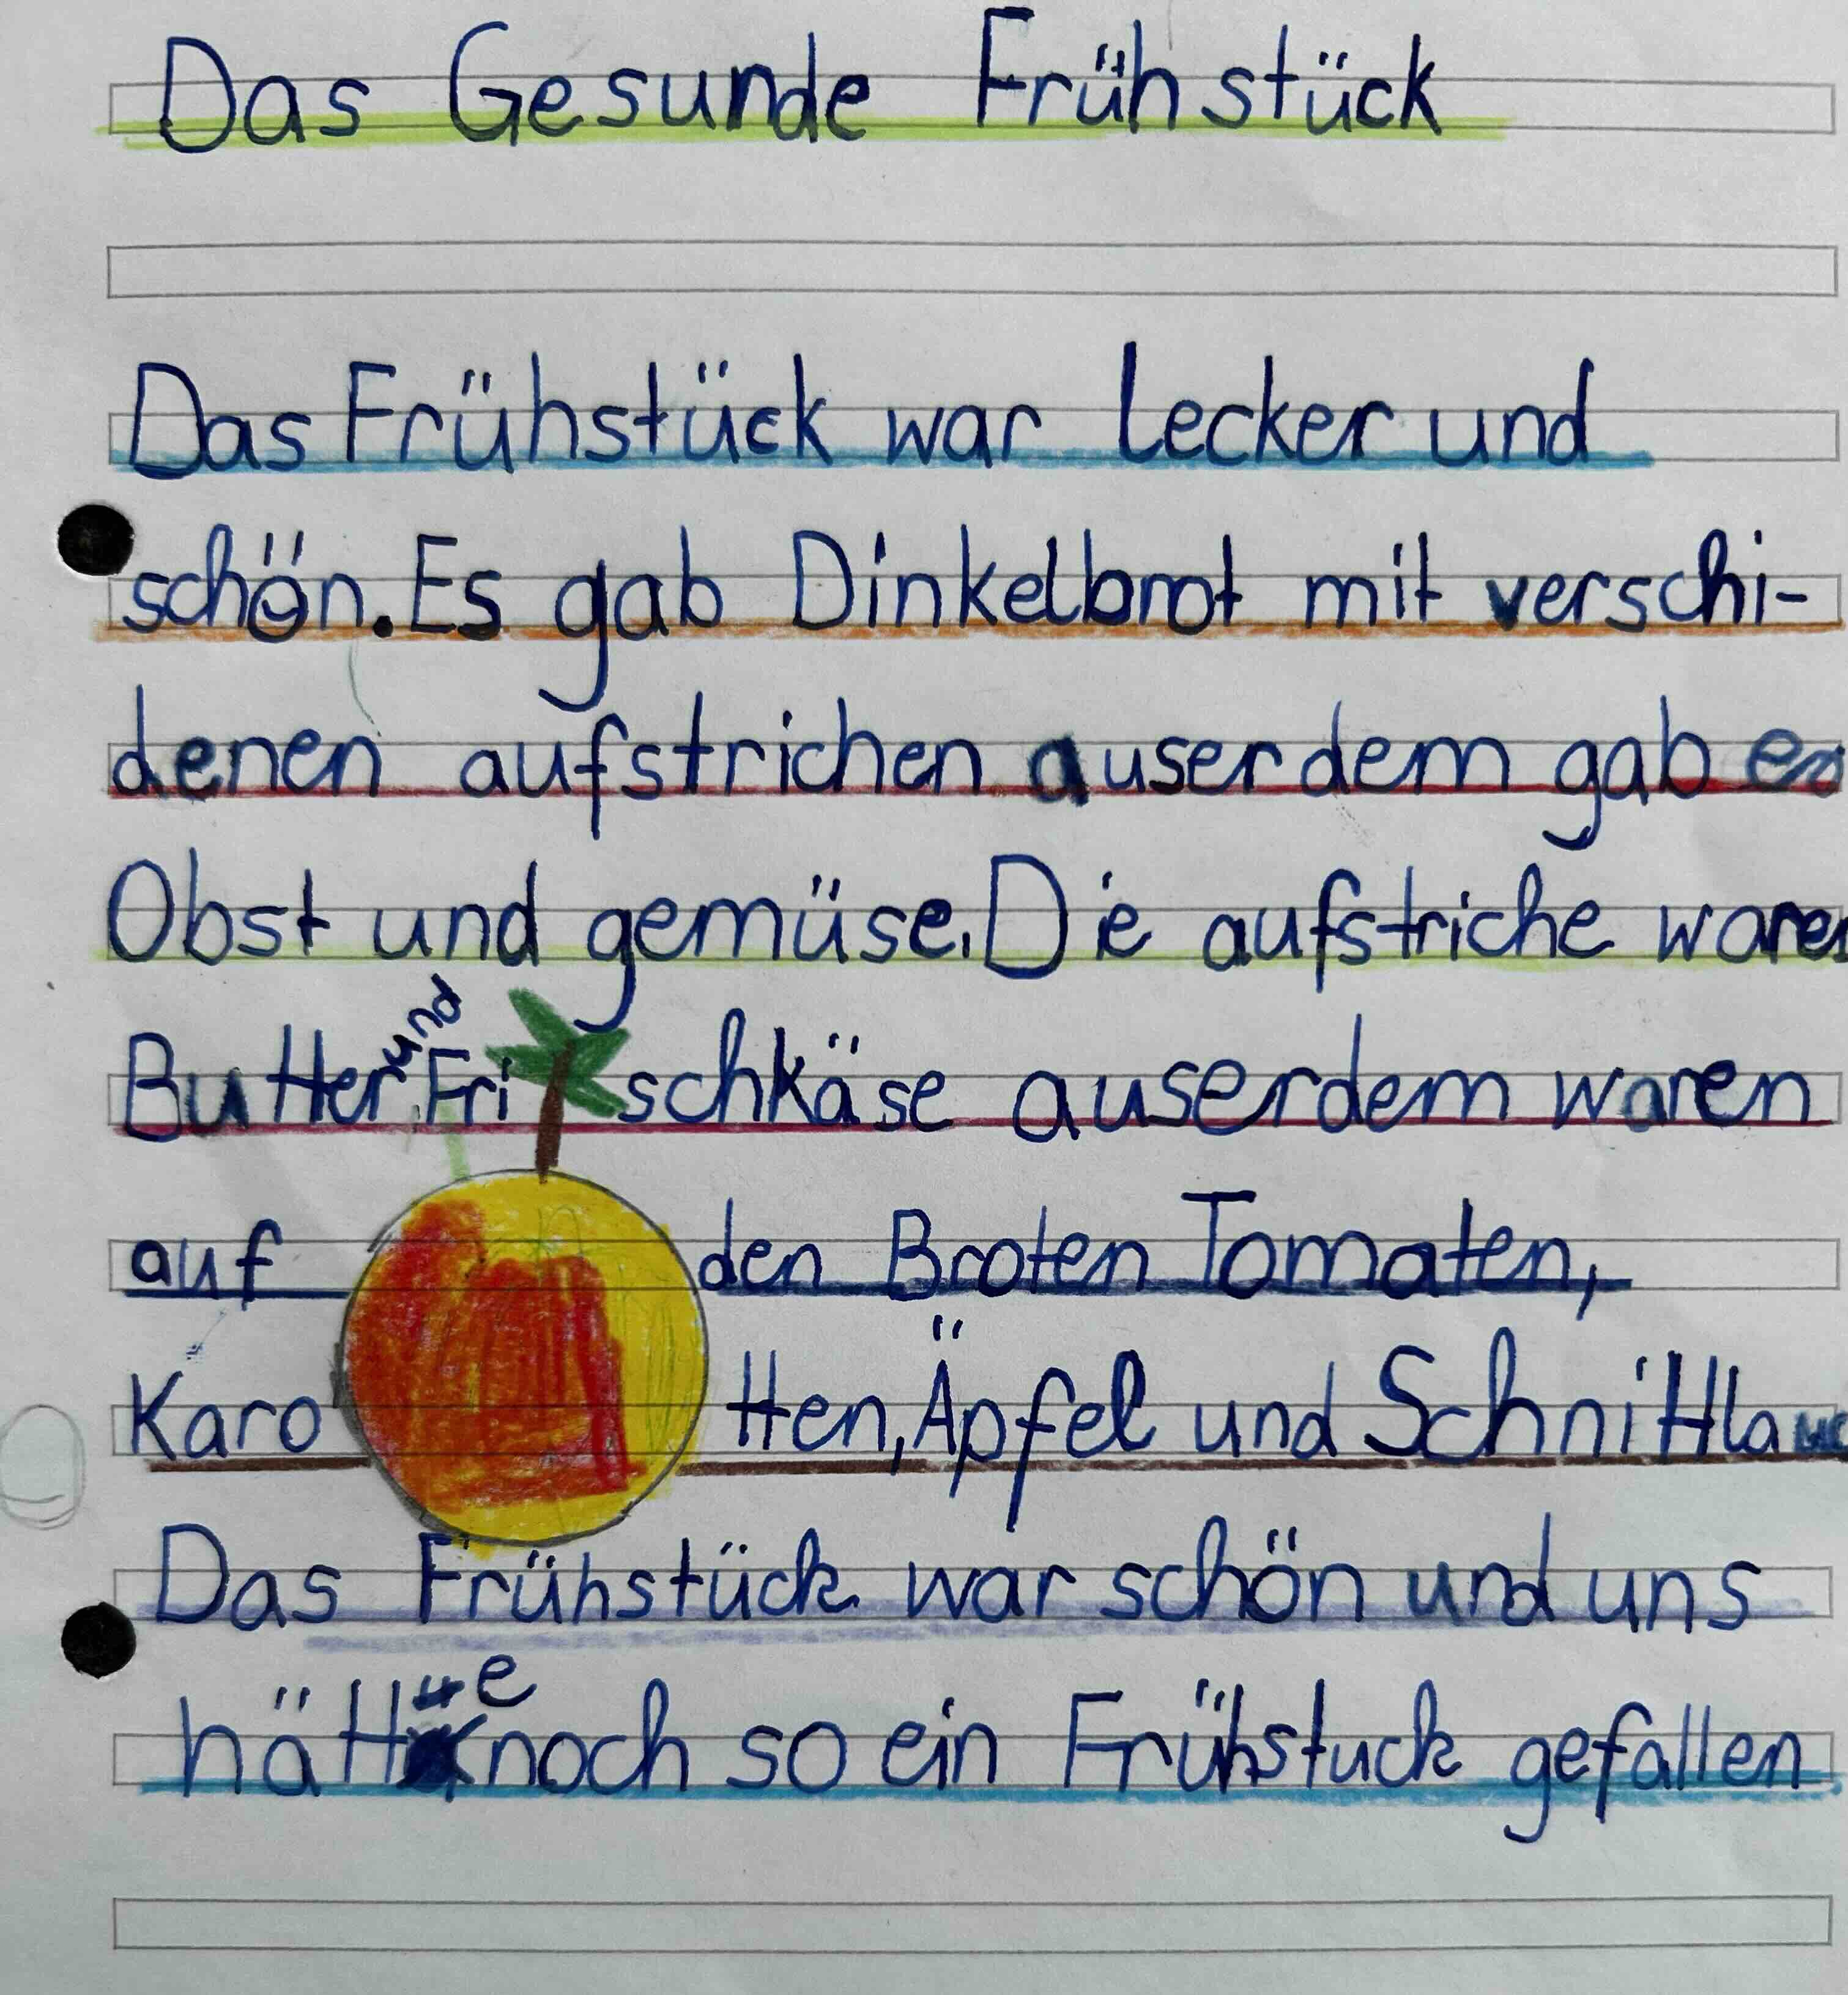 Das Gesunde Frühstück
Das Frühstück war lecker und
schön. Es gab Dinkelbrot mit verschi-
denen aufstrichen auserdem gab es
Obst und gemüse. Die aufstriche waren
Butter und Frischkäse auserdem waren
auf den Broten Tomaten,
Karotten, Äpfel und Schnittlauc
Das Frühstück war schön und uns
hätte noch so ein Frühstuck gefallen